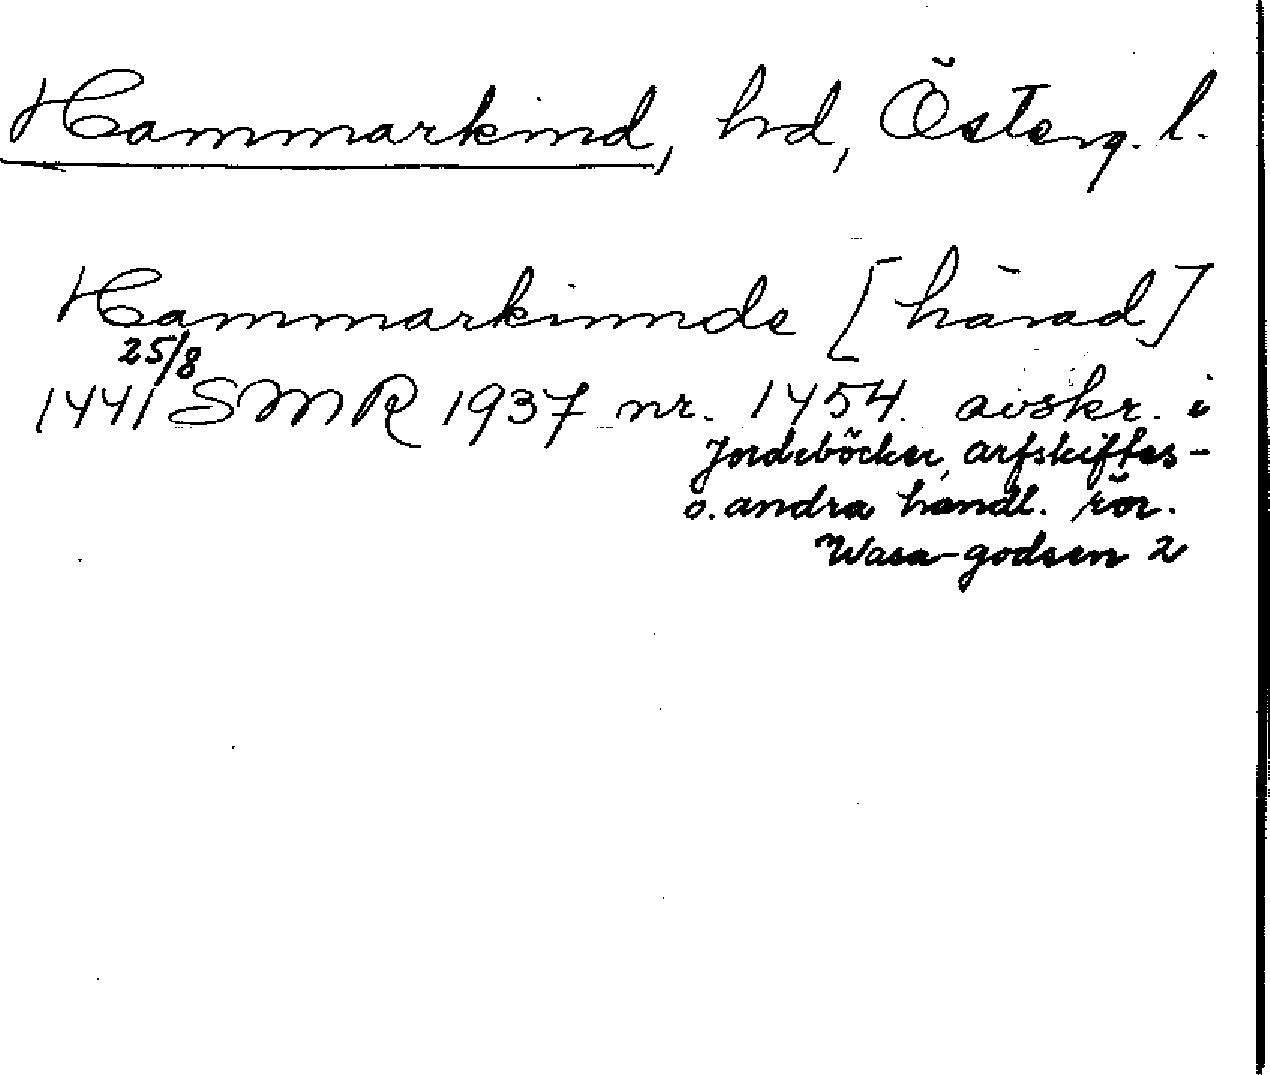 Hammarkind, hd, Österg. l.
Hammarkinde [härad]
25/8
1441 SMR 1937 nr. 1454. avskr. i
Jordeböcker, arfskiftes-
o. andra handl. rör.
Wasa-godsen 2